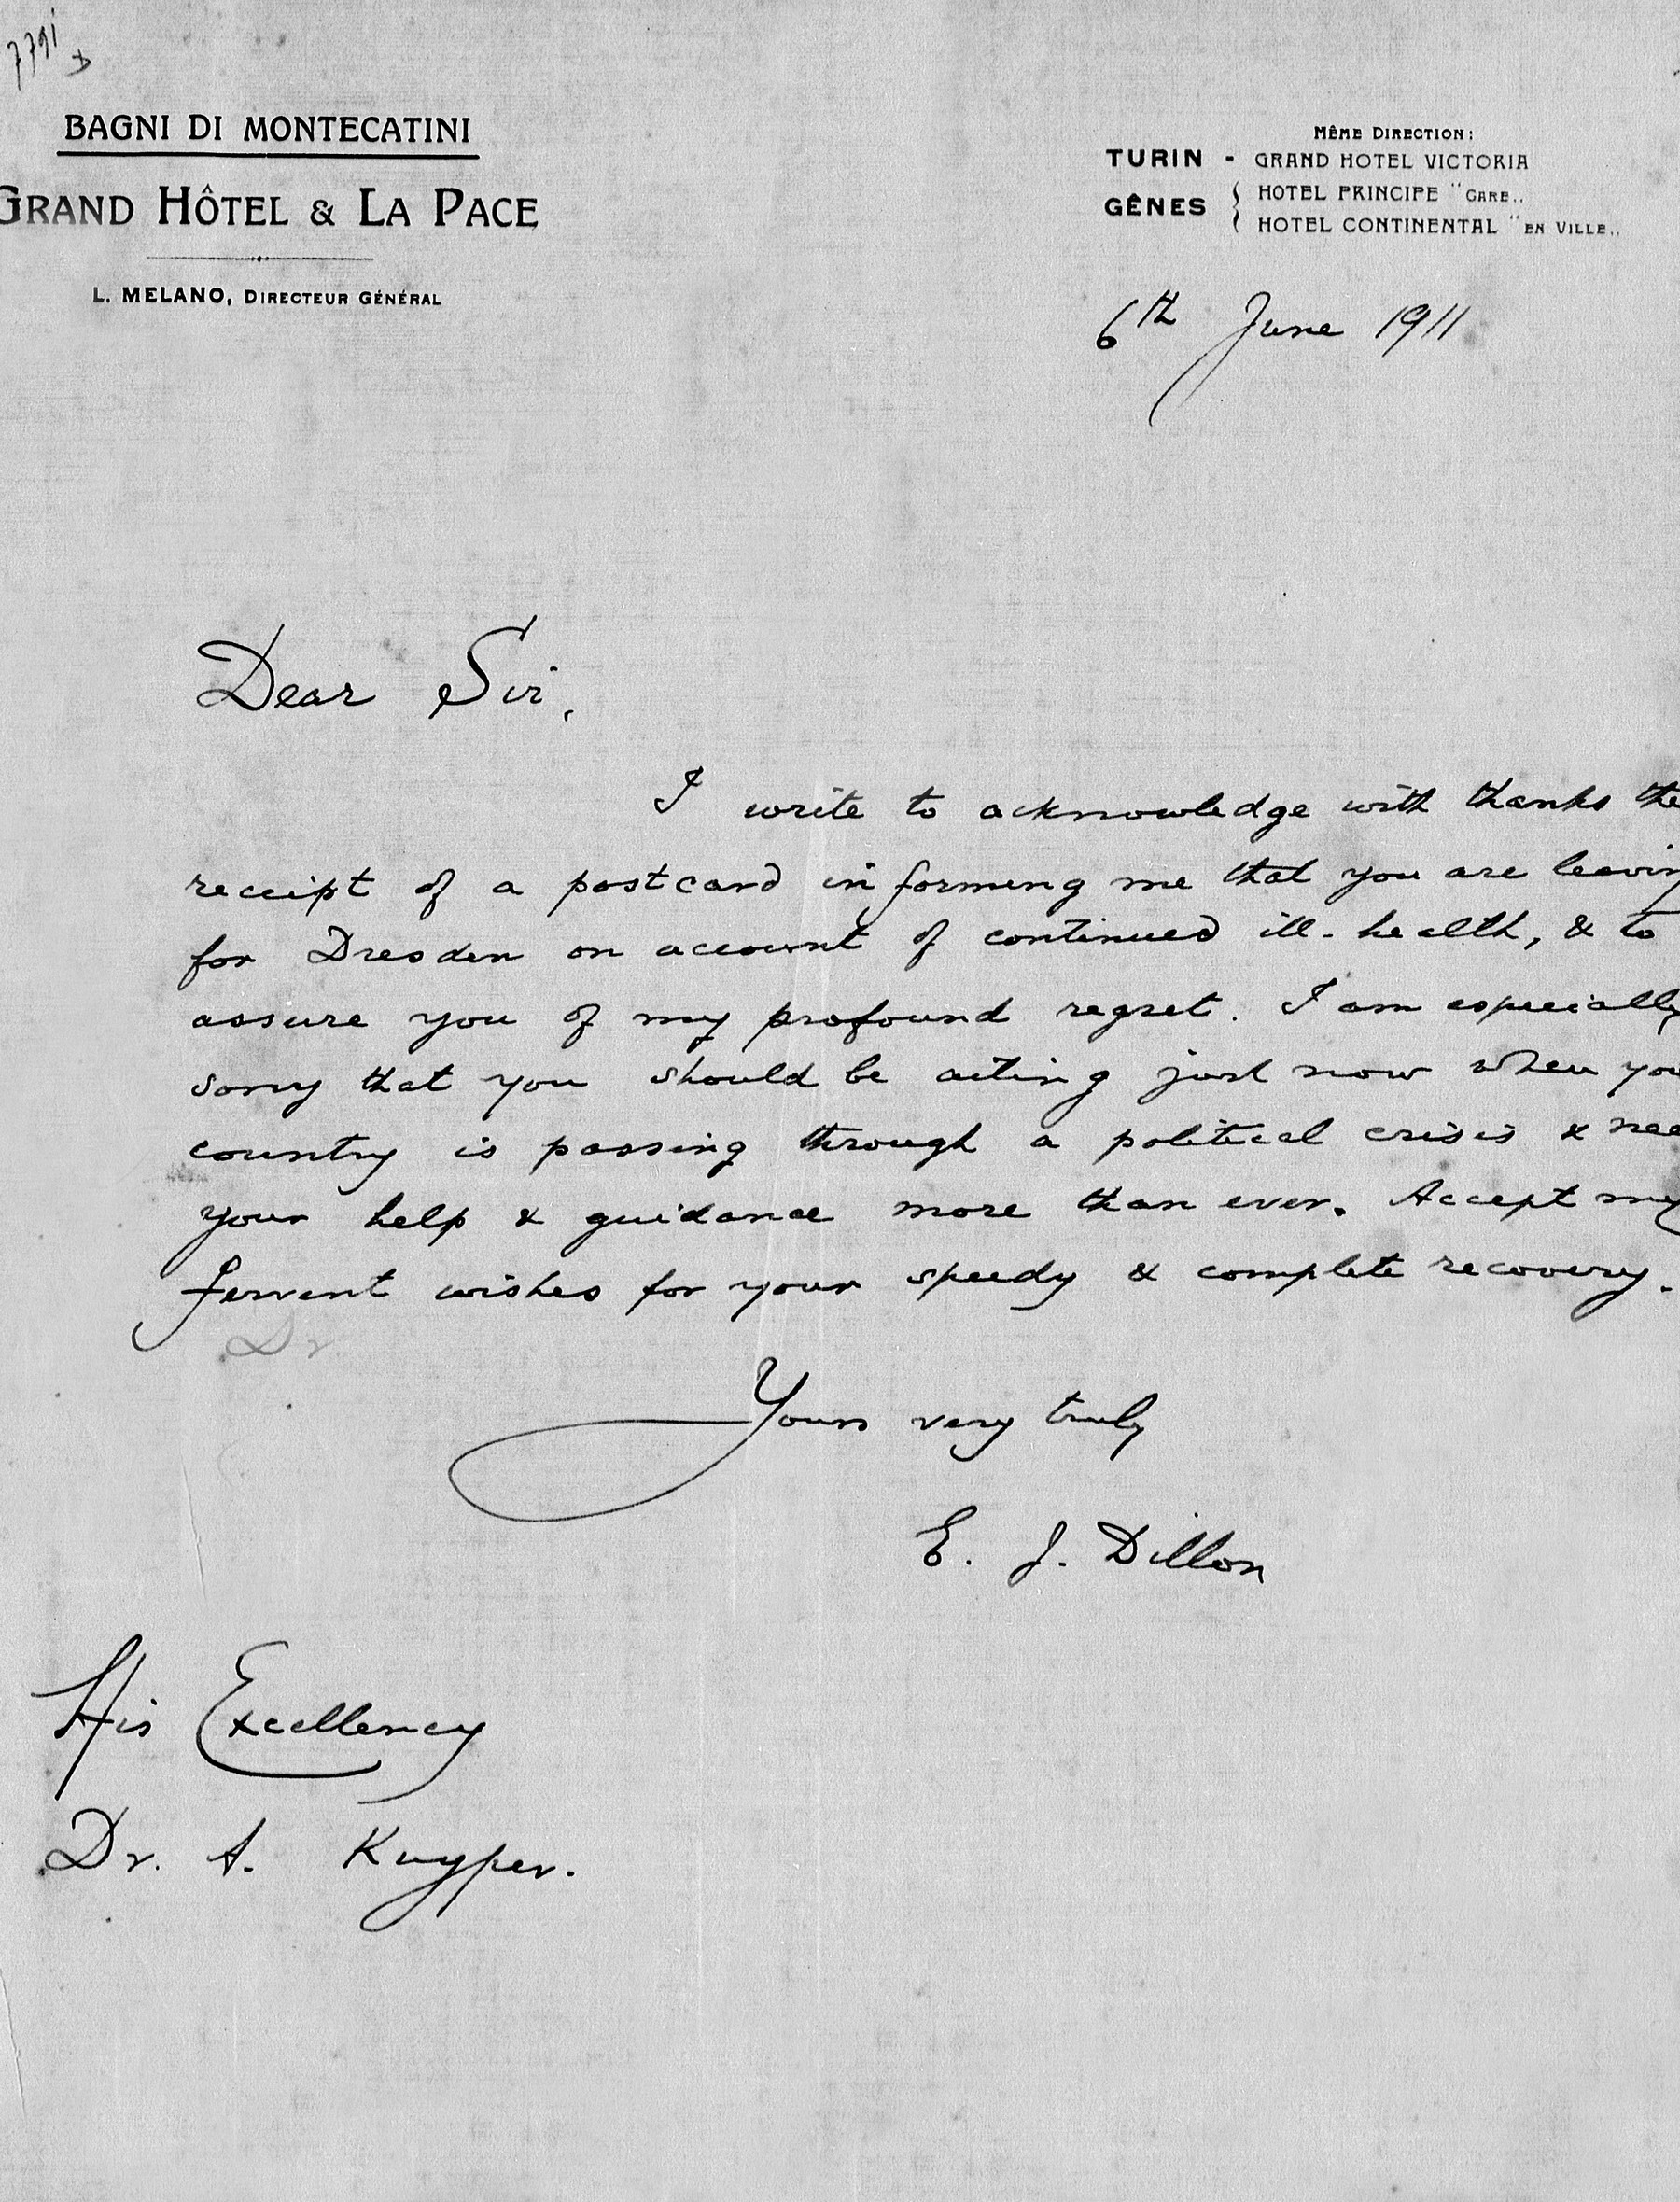 7791
BAGNI DI MONTECATINI
GRAND HÔTEL & LA PACE
L. MELANO, DIRECTEUR GÉNÉRAL
MÊME DIRECTION:
TURIN - GRAND HOTEL VICTORIA
GÊNES { HOTEL PRINCIPE "GARE"
HOTEL CONTINENTAL "EN VILLE"
6th June 1911
Dear Sir,
I write to acknowledge with thanks the
receipt of a postcard informing me that you are leaving
for Dresden on account of continued ill-health, & to
assure you of my profound regret. I am especially
sorry that you should be ailing just now when you
country is passing through a political crisis & nee
your help & guidance more than ever. Accept my
fervent wishes for your speedy & complete recovery.
Dr
Yours very truly
E. J. Dillon
His Excellency
Dr. A. Kuyper.